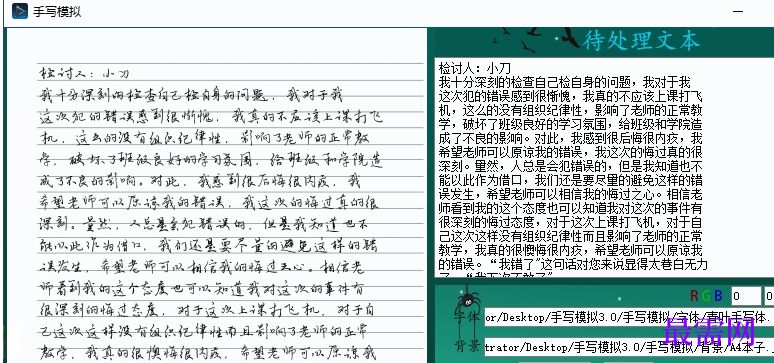 手写模拟
检讨人：小刀
我十分深刻的检查自己检自身的问题，我对于我
这次犯的错误感到很惭愧，我真的不应该上课打飞
机，这么的没有组织纪律性，影响了老师的正常教
学，破坏了班级良好的学习氛围，给班级和学院造
成了不良的影响。对此，我感到很后悔很内疚，我
希望老师可以原谅我的错误，我这次的悔过真的很
深刻。量然，人总是会犯错误的，但是我知道也不
能以此作为借口，我们还是要尽量的避免这样的错
误发生，希望老师可以相信我的悔过之心。相信老
师看到我的这个态度也可以知道我对这次的事件有
很深刻的悔过态度，对于这次上课打飞机，对于自
己这次这样没有组织纪律性而且影响了老师的正常
教学，我真的很懊悔很内疚，希望老师可以原谅我
待处理文本
检讨人：小刀
我十分深刻的检查自己检自身的问题，我对于我
这次犯的错误感到很惭愧，我真的不应该上课打飞
机，这么的没有组织纪律性，影响了老师的正常教
学，破坏了班级良好的学习氛围，给班级和学院造
成了不良的影响。对此，我感到很后悔很内疚，我
希望老师可以原谅我的错误，我这次的悔过真的很
深刻。量然，人总是会犯错误的，但是我知道也不
能以此作为借口，我们还是要尽量的避免这样的错
误发生，希望老师可以相信我的悔过之心。相信老
师看到我的这个态度也可以知道我对这次的事件有
很深刻的悔过态度，对于这次上课打飞机，对于自
己这次这样没有组织纪律性而且影响了老师的正常
教学，我真的很懊悔很内疚，希望老师可以原谅我
的错误。“我错了”这句话对您来说显得太苍白无力
RGB 0 0
字体 or/Desktop/手写模拟3.0/手写模拟/字体/青叶手写体.
背景 trator/Desktop/手写模拟/背景/A4本子.
最需网